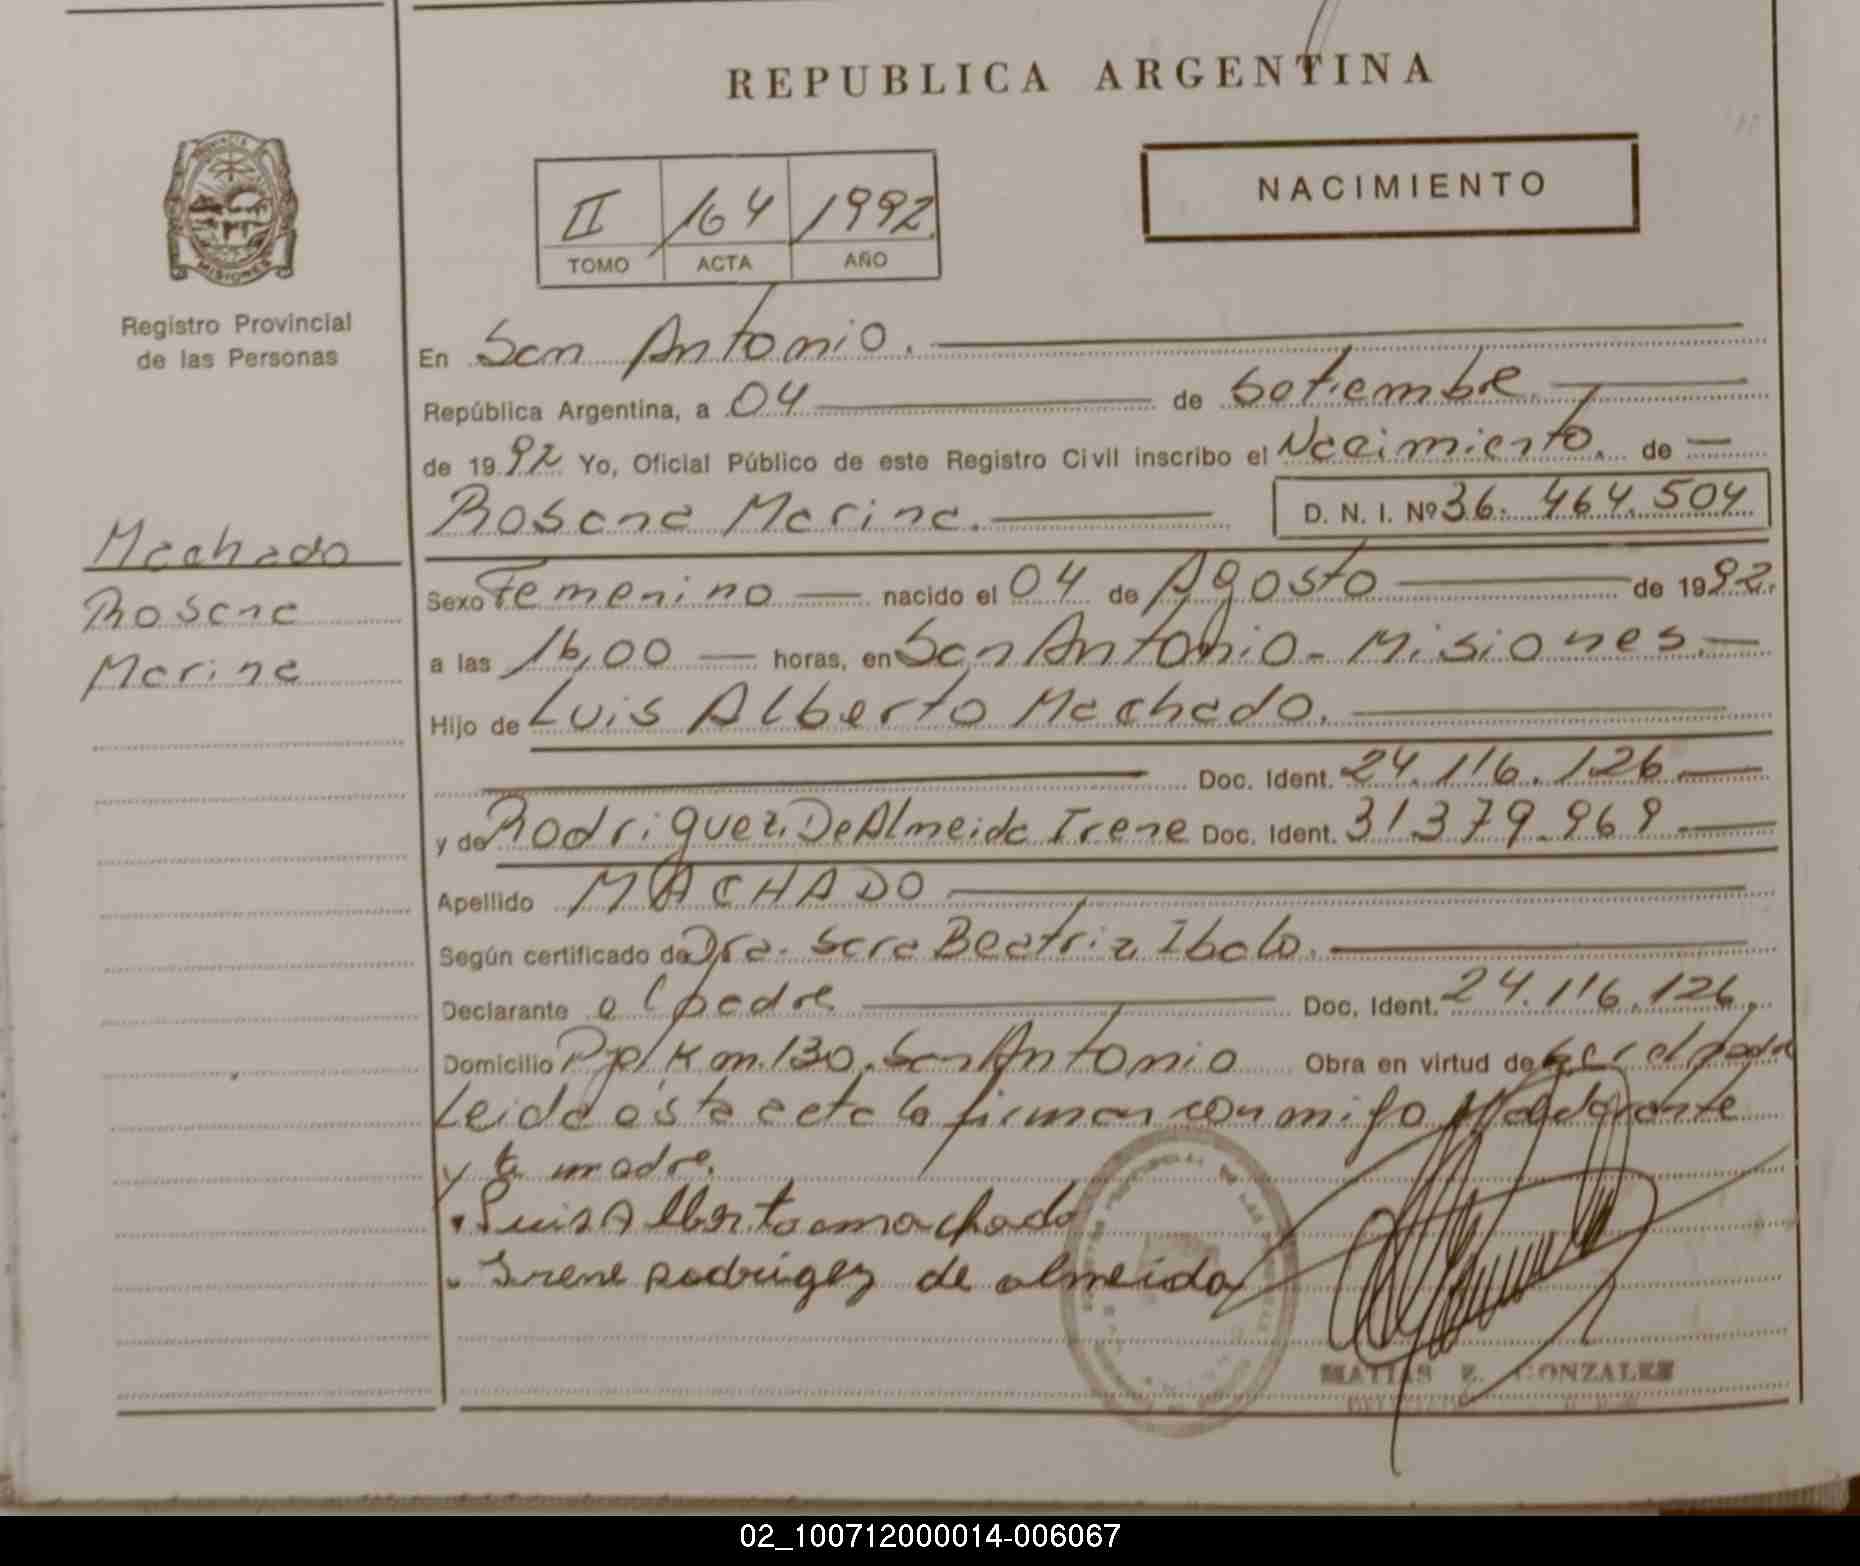 REPUBLICA ARGENTINA
PROVINCIA DE
MISIONES
Registro Provincial
de las Personas
II 164 1992
TOMO ACTA AÑO
NACIMIENTO
En San Antonio.
República Argentina, a 04 de Setiembre
de 1992 Yo, Oficial Público de este Registro Civil inscribo el Nacimiento. de
Rosana Marina. D. N. I. Nº 36. 464. 504
Machado
Rosana
Marina
Sexo Femenino nacido el 04 de Agosto de 1992.
a las 16,00 horas, en San Antonio - Misiones.
Hijo de Luis Alberto Machado.
Doc. Ident. 24.116.126
y de Rodriguez De Almeida Irene Doc. Ident. 31379.969
Apellido MACHADO
Según certificado de Dra. Sara Beatriz Ibalo.
Declarante el padre Doc. Ident. 24.116.126.
Domicilio Pje. Km. 130. San Antonio Obra en virtud de ser el padre
Leida esta acta la firman conmigo el declarante
y la madre.
Luis Alberto machado
Irene Rodrigez de almeida
MATIAS E. GONZALEZ
02_100712000014-006067